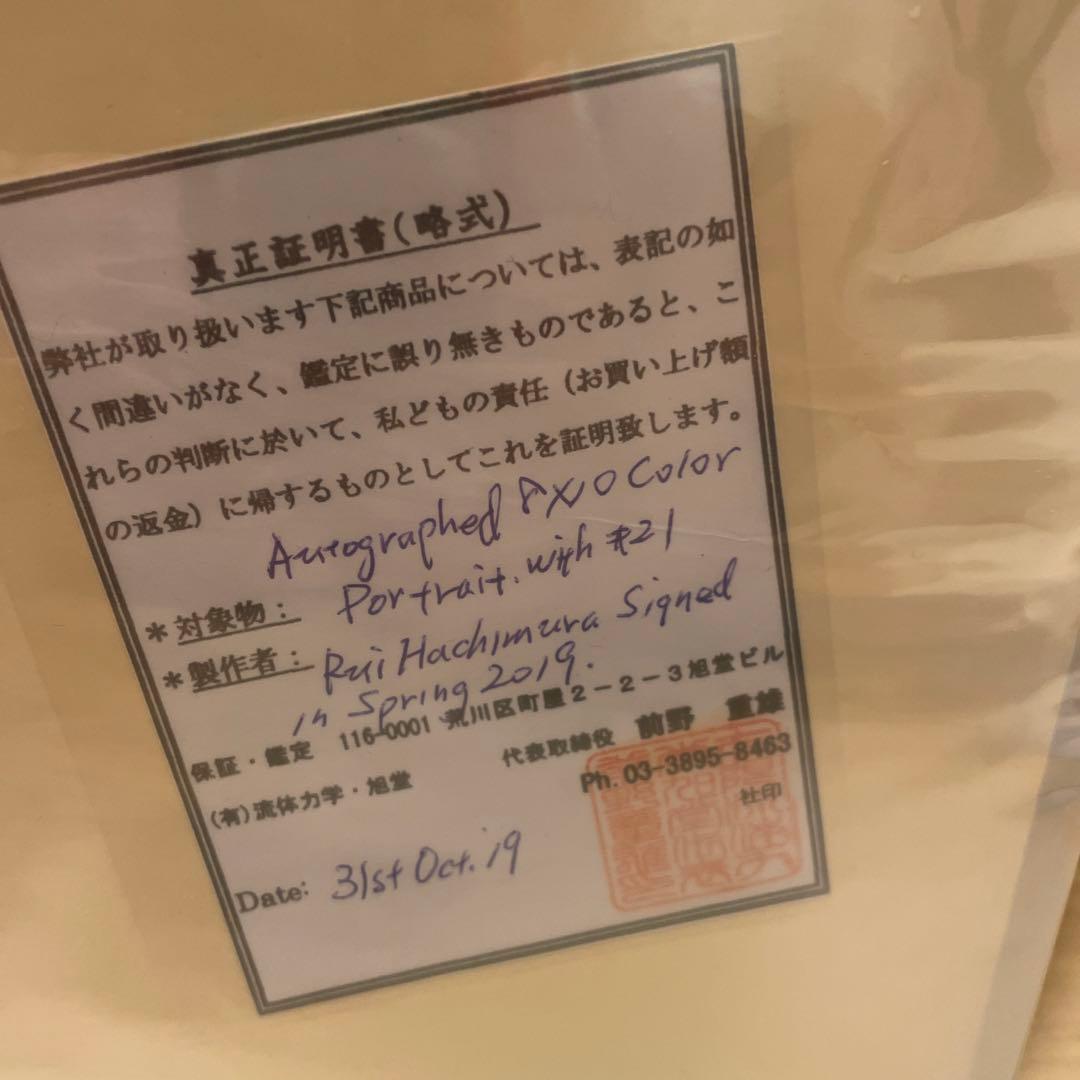 真正証明書(略式)
弊社が取り扱います下記商品については、表記の如
く間違いがなく、鑑定に誤り無きものであると、こ
れらの判断に於いて、私どもの責任(お買い上げ額
の返金)に帰するものとしてこれを証明致します。
Autographed 8X10 Color
*対象物: Portrait. with #21
*製作者: Rui Hachimura Signed
in Spring 2019.
保証・鑑定 116-0001 荒川区町屋2-2-3旭堂ビル
(有)流体力学・旭堂 代表取締役 前野 重雄
Ph. 03-3895-8463
社印
Date: 31st Oct. 19